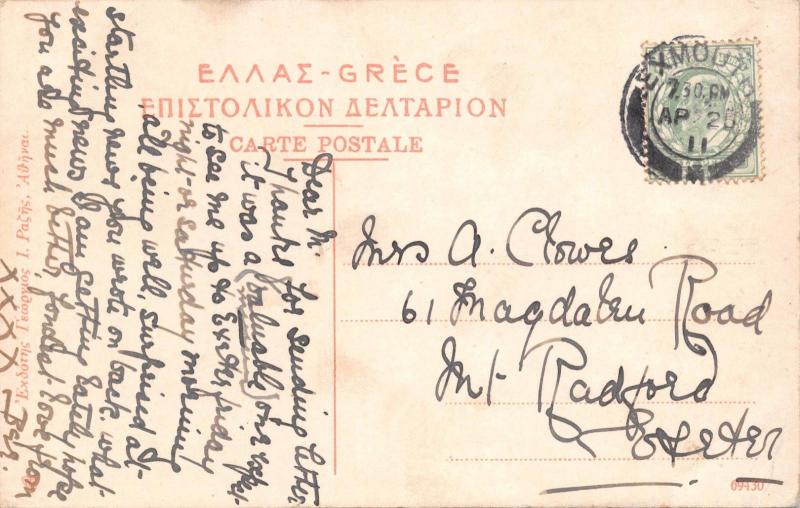 ΕΛΛΑΣ-GRÈCE
ΕΠΙΣΤΟΛΙΚΟΝ ΔΕΛΤΑΡΙΟΝ
CARTE POSTALE
EXMOUTH
7.30 PM
AP 25
11
Mrs A. Clowes
61 Magdalen Road
Mt Radford
Exeter
Dear M.
Thanks for sending letter,
it was a (valuable) one
to see me up to Exeter, friday
night or saturday morning
all being well, surprised at
startling news you wrote on back. what
exciting news I am getting lately, hope
you are much better, fondest love from
XXXX
Ἐκδότης Γεώργιος Ι. Ραζῆς, Ἀθῆναι.
09430